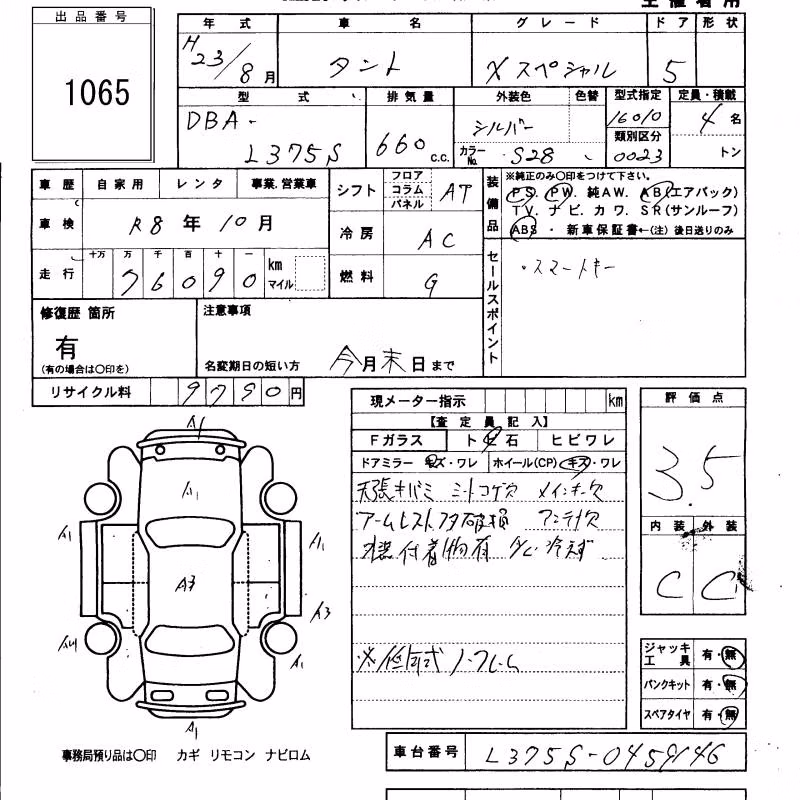 出品番号
1065
年式 車名 グレード ドア 形状
H23/8月 タント Xスペシャル 5
型式 排気量 外装色 色替 型式指定 定員・積載
DBA-L375S 660 c.c. シルバー 16010 4名
カラーNo. S28 類別区分 0023 トン
車歴 自家用 レンタ 事業.営業車
車検 R8年10月
走行 十万 万 千 百 十 一 km マイル
76090
シフト フロア コラム パネル AT
冷房 AC
燃料 G
装備品
※純正のみ○印をつけて下さい。
PS. PW. 純AW. AB(エアバック)
TV. ナビ. カワ. SR(サンルーフ)
ABS ・ 新車保証書←(注)後日送りのみ
セールスポイント
・スマートキー
修復歴 箇所
有
(有の場合は○印を)
注意事項
名変期日の短い方 今月末日まで
リサイクル料 9790円
現メーター指示 km
【査定員記入】
Fガラス ト化石 ヒビワレ
ドアミラー キズ・ワレ ホイール(CP) キズ・ワレ
天張キバミ シートコゲ穴 メインキー欠
アームレストフタ破損 アンテナ欠
付着物有 冷えず
※低年式
評価点
3.5
内装 外装
C C
A1
A1
A1
A1
A3
A3
A1
A1
ジャッキ工具 有・無
パンクキット 有・無
スペアタイヤ 有・無
事務局預り品は○印 カギ リモコン ナビロム
車台番号 L375S-0459146